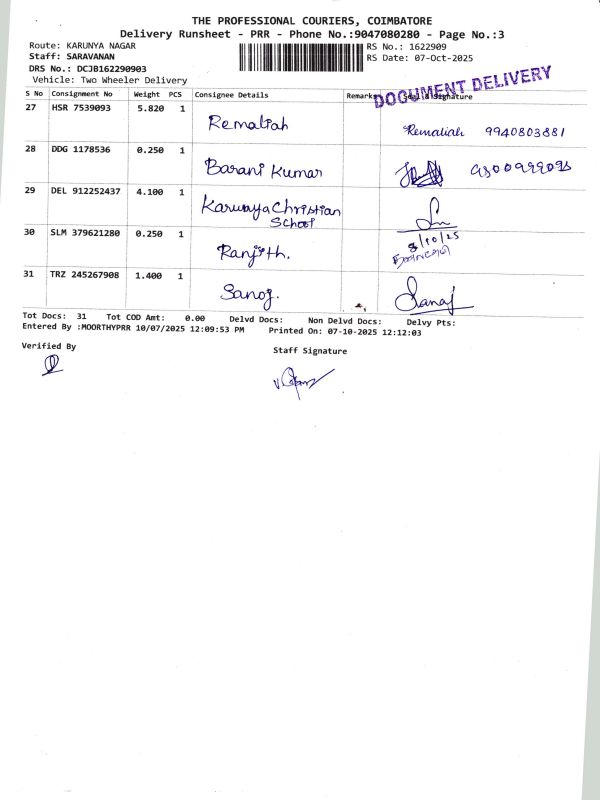 THE PROFESSIONAL COURIERS, COIMBATORE
Delivery Runsheet - PRR - Phone No.:9047080280 - Page No.:3
Route: KARUNYA NAGAR
RS No.: 1622909
Staff: SARAVANAN
RS Date: 07-Oct-2025
DRS No.: DCJB162290903
Vehicle: Two Wheeler Delivery
DOCUMENT DELIVERY
S No Consignment No Weight PCS Consignee Details Remarks Signature
27 HSR 7539093 5.820 1 Remaliah Remaliah 9940803881
28 DDG 1178536 0.250 1 Barani Kumar
29 DEL 912252437 4.100 1 Karunya Christian
School
30 SLM 379621280 0.250 1 Ranjith. 8/10/25
31 TRZ 245267908 1.400 1 Sanoj. Sanaj
Tot Docs: 31 Tot COD Amt: 0.00 Delvd Docs: Non Delvd Docs: Delvy Pts:
Entered By :MOORTHYPRR 10/07/2025 12:09:53 PM Printed On: 07-10-2025 12:12:03
Verified By
Staff Signature